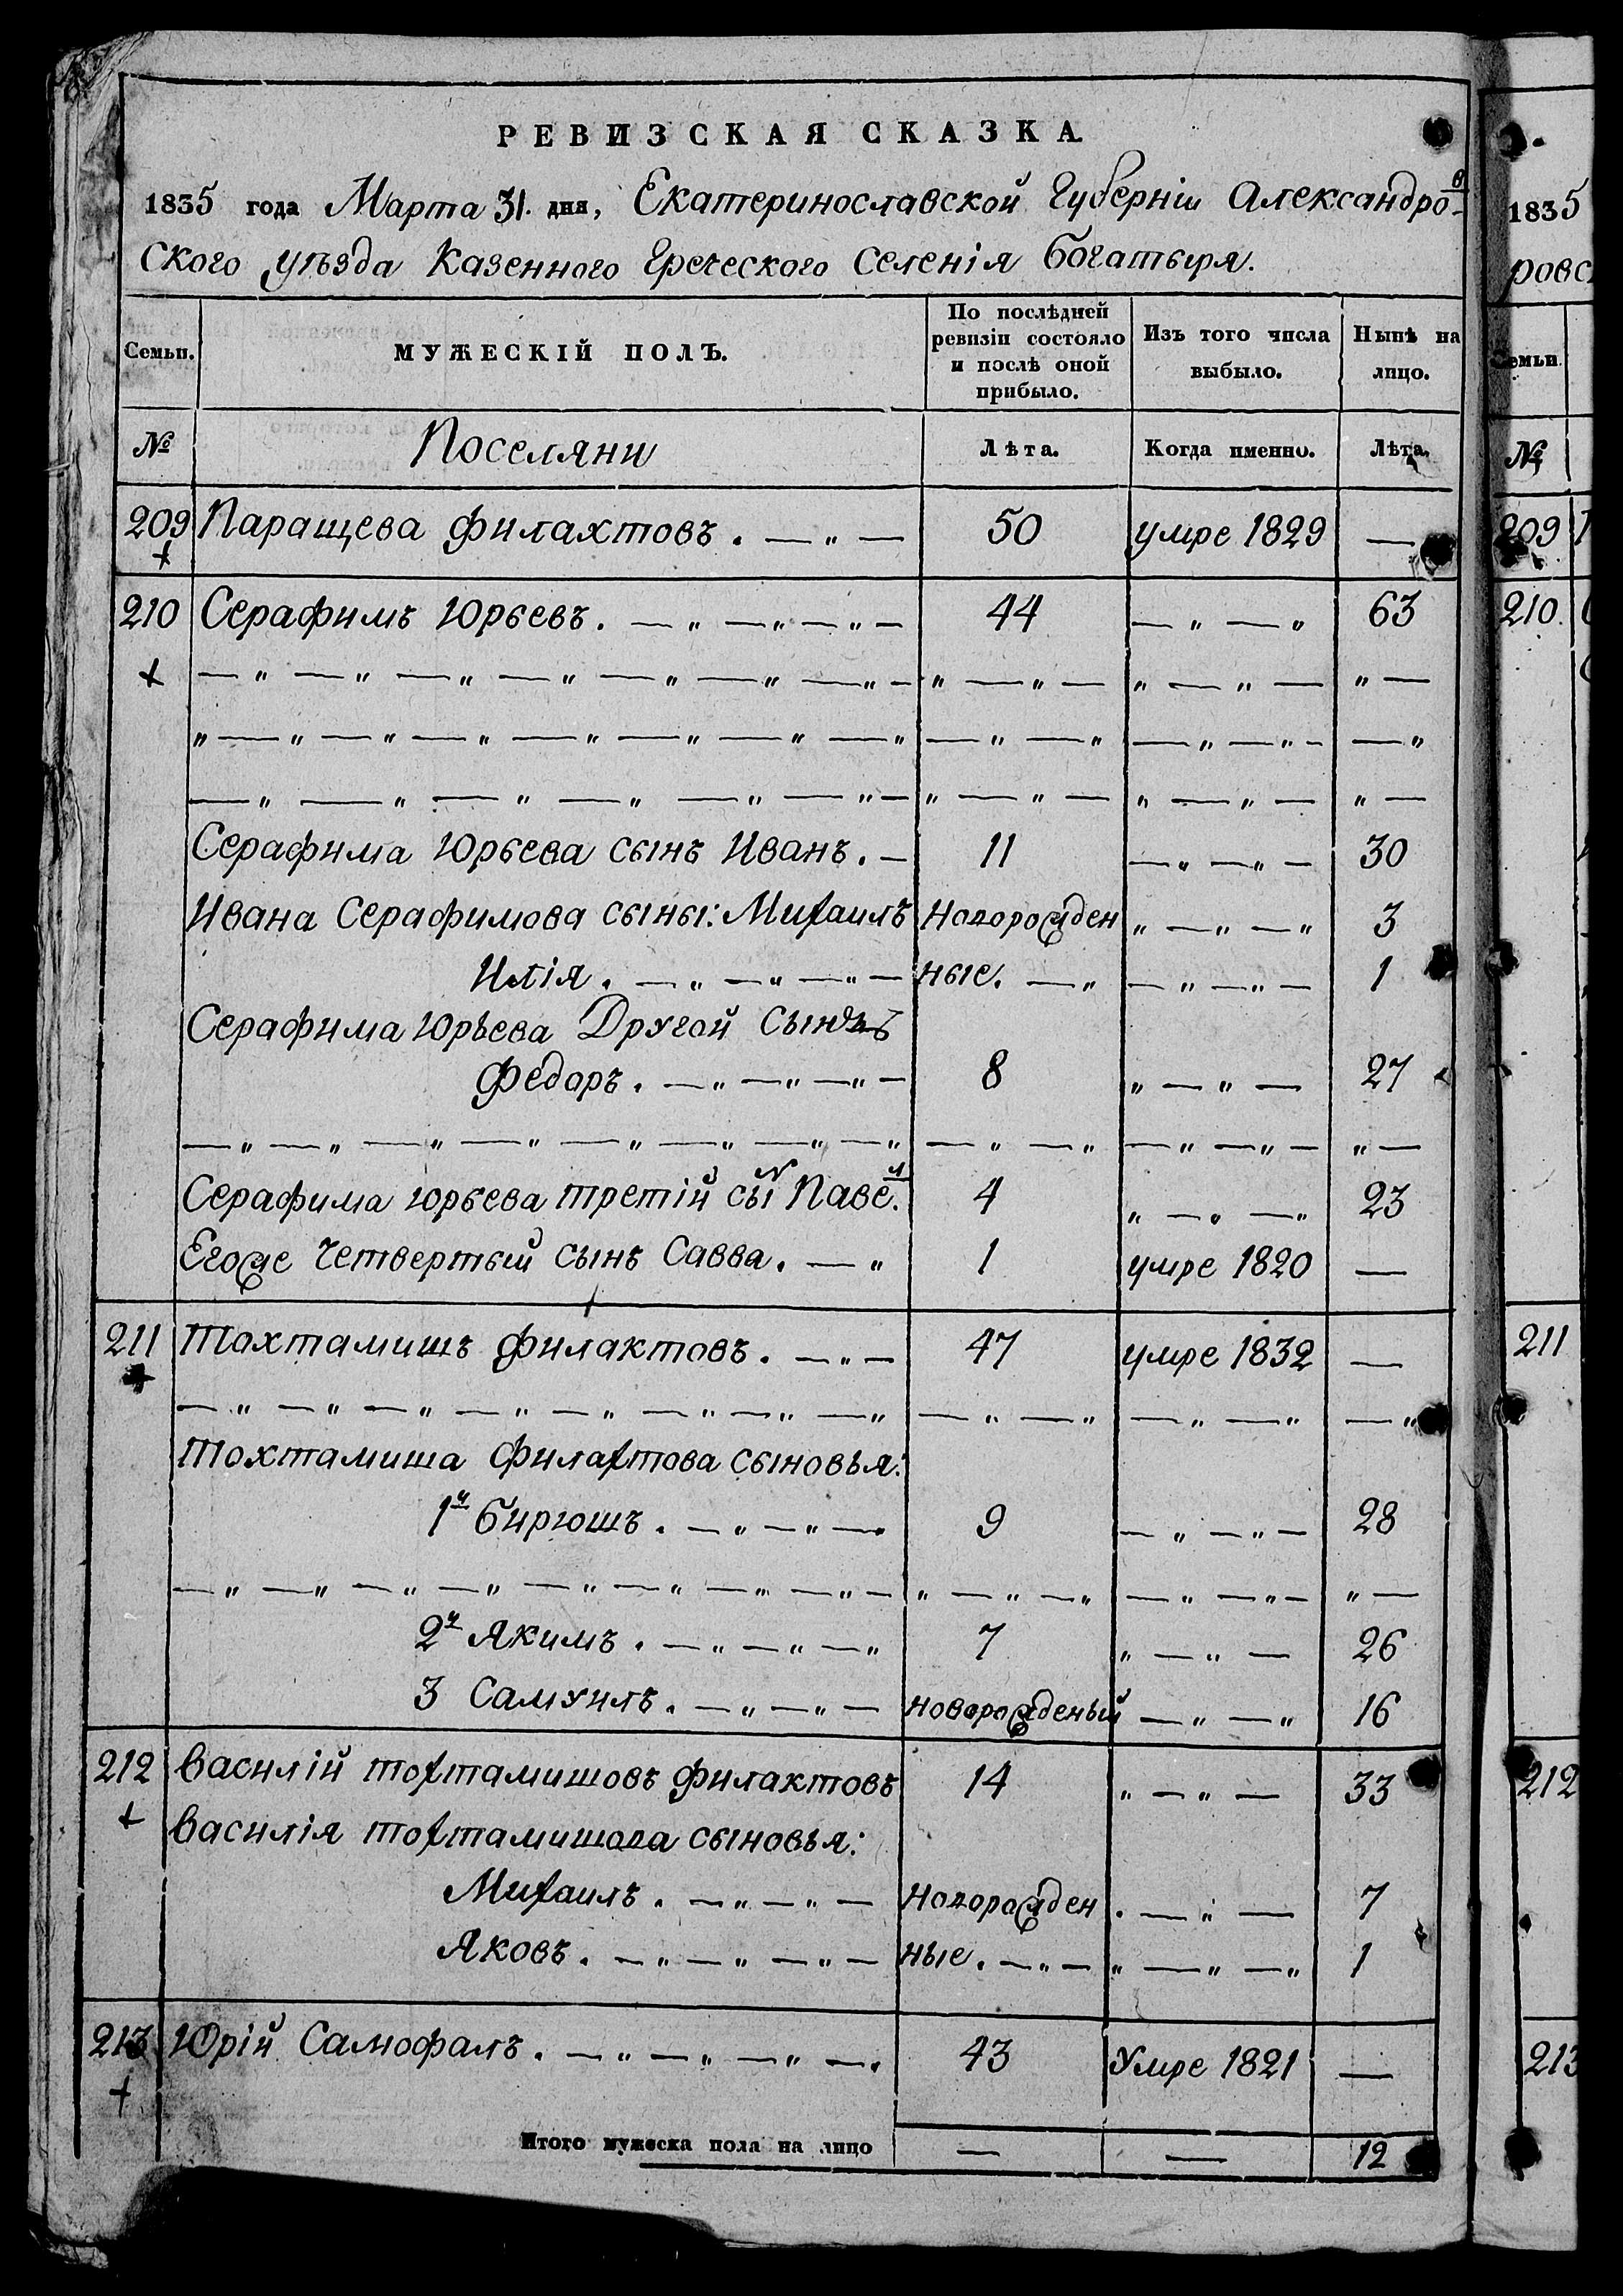 РЕВИЗСКАЯ СКАЗКА.
1835 года Марта 31. дня, Екатеринославской Губерніи Александров-
ского уѣзда Казенного Греческого Селенія Богатыря.
Семьи. МУЖЕСКІЙ ПОЛЪ. По послѣдней ревизіи состояло и послѣ оной прибыло. Изъ того числа выбыло. Нынѣ на лицо.
№ Поселяни Лѣта. Когда именно. Лѣта.
209 Паращева Филахтовъ. — „ — 50 умре 1829 —
+
210 Серафимъ Юрьевъ. — „ — „ — „ — 44 — „ — „ 63
+ — „ — „ — „ — „ — „ — „ — „ — „ — „ — „ — „ — „ —
„ — „ — „ — „ — „ — „ — „ — „ — „ — „ — „ — „ — — „
— „ — „ — „ — „ — „ — „ — „ — „ — „ — „ — „ —
Серафима Юрьева сынъ Иванъ. — 11 — „ — „ — 30
Ивана Серафимова сыны: Михаилъ Новорожден „ — „ — „ 3
Илія. — „ — „ — „ — ные. — „ — „ — „ — 1
Серафима Юрьева Другой Сынъ
Федоръ. — „ — „ — „ — 8 „ — „ — 27
— „ — „ — „ — „ — „ — „ — „ — „ — „ — „ — „ — „ — „ —
Серафима Юрьева третій сын Павел. 4 „ — „ — „ 23
Егоже Четвертый сынъ Савва. — „ 1 умре 1820 —
211 Тохтамишъ Филактовъ. — „ — 47 умре 1832 —
+ — „ — „ — „ — „ — „ — „ — „ — „ — „ — „ — „ — „ — „
Тохтамиша Филахтова сыновья:
1й Бирюшъ. — „ — „ — „ 9 — „ — „ — 28
— „ — „ — „ — „ — „ — „ — „ — „ — „ — „ — „ — „ — „ — „ —
2й Якимъ. — „ — „ — „ 7 „ — „ — 26
3 Самуилъ. — „ — „ — новорожденый — „ — „ 16
212 Василій Тохтамишовъ Филактовъ 14 „ — „ — 33
+ Василія Тохтамишова сыновья:
Михаилъ. — „ — „ — Новорожден . — „ — 7
Яковъ. — „ — „ — „ — ные. — „ — „ — „ — „ 1
213 Юрій Самофалъ. — „ — „ — „ — „ 43 Умре 1821 —
+
Итого мужеска пола на лицо — — 12
1835
ровс
Семьи
№
209
210.
211
212
213